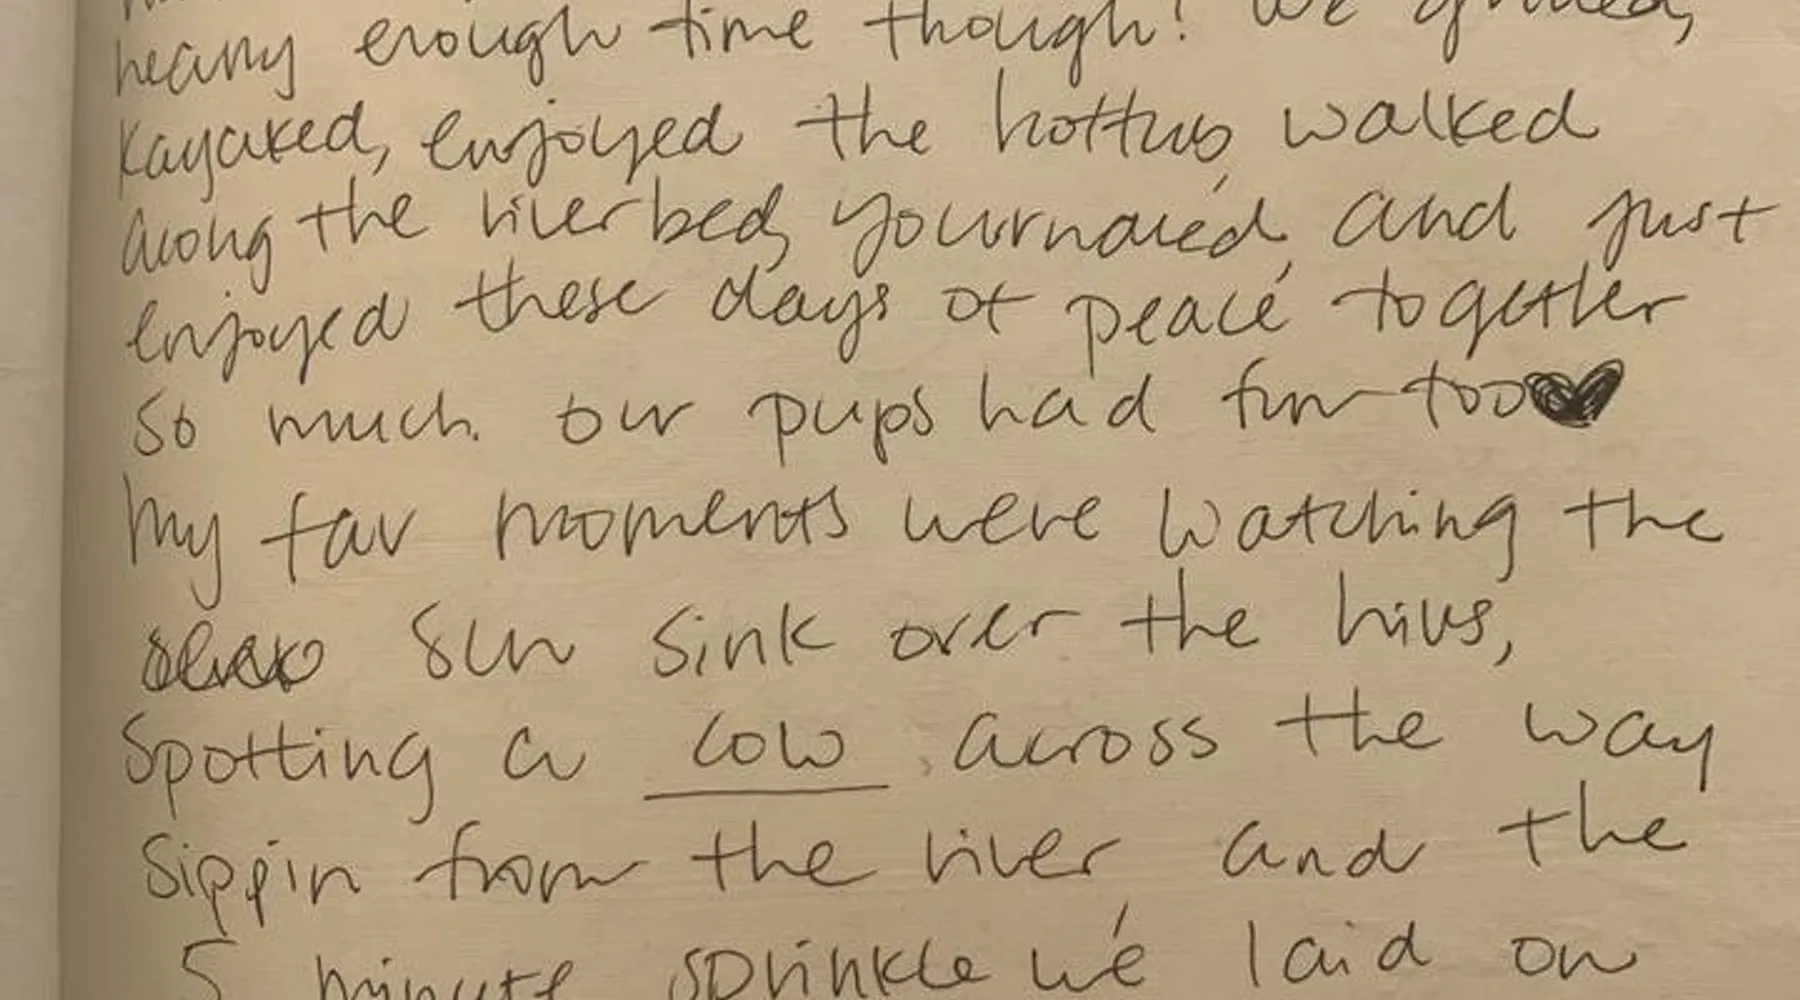 heavy enough time though! We grilled,
kayaked, enjoyed the hottub, walked
along the riverbed, yournaled, and just
enjoyed these days of peace together
so much. our pups had fun too♥
My fav moments were watching the
sun sink over the hills,
Spotting a cow across the way
Sippin from the river and the
5 minute sprinkle we laid on